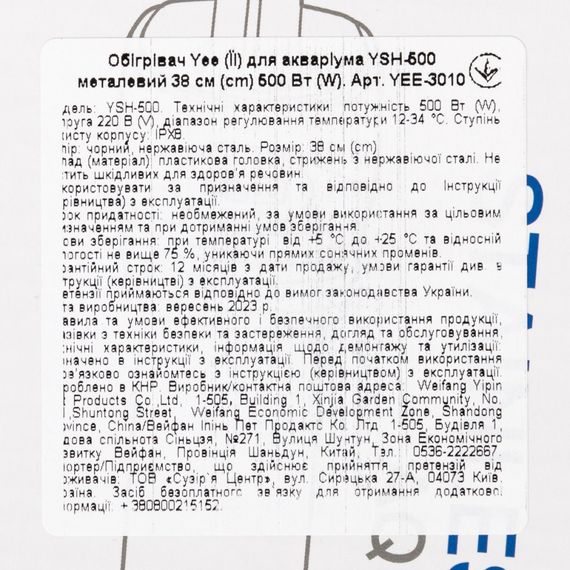 Обігрівач Yee (Її) для акваріума YSH-500
металевий 38 см (cm) 500 Вт (W). Арт. YEE-3010
дель: YSH-500. Технічні характеристики: потужність 500 Вт (W),
пруга 220 В (V), діапазон регулювання температури 12-34 °C. Ступінь
хисту корпусу: IPX8.
лір: чорний, нержавіюча сталь. Розмір: 38 см (cm)
лад (матеріал): пластикова головка, стрижень з нержавіючої сталі. Не
стить шкідливих для здоров'я речовин.
користовувати за призначення та відповідно до Інструкції
ерівництва) з експлуатації.
рок придатності: необмежений, за умови використання за цільовим
изначенням та при дотриманні умов зберігання.
ови зберігання: при температурі від +5 °C до +25 °C та відносній
логості не вище 75 %, уникаючи прямих сонячних променів.
рантійний строк: 12 місяців з дати продажу, умови гарантії див. в
трукції (керівництві) з експлуатації.
етензії приймаються відповідно до вимог законодавства України.
та виробництва: вересень 2023 р.
авила та умови ефективного і безпечного використання продукції,
азівки з техніки безпеки та застереження, догляд та обслуговування,
хнічні характеристики, інформація щодо демонтажу та утилізації:
значено в інструкції з експлуатації. Перед початком використання
ов'язково ознайомтесь з інструкцією (керівництвом) з експлуатації.
роблено в КНР. Виробник/контактна поштова адреса: Weifang Yipin
t Products Co.,Ltd, 1-505, Building 1, Xinjia Garden Community, No.
1,Shuntong Street, Weifang Economic Development Zone, Shandong
ovince, China/Вейфан Іпінь Пет Продактс Ко. Лтд 1-505, Будівля 1,
дова спільнота Сіньцзя, №271, Вулиця Шунтун, Зона Економічного
звитку Вейфан, Провінція Шаньдун, Китай, Тел. 0536-2222667.
портер/Підприємство, що здійснює прийняття претензій від
оживачів: ТОВ «Сузір'я Центр», вул. Сирецька 27-А, 04073 Київ.
раїна. Засіб безоплатного зв'язку для отримання додаткової
формації: +380800215152.